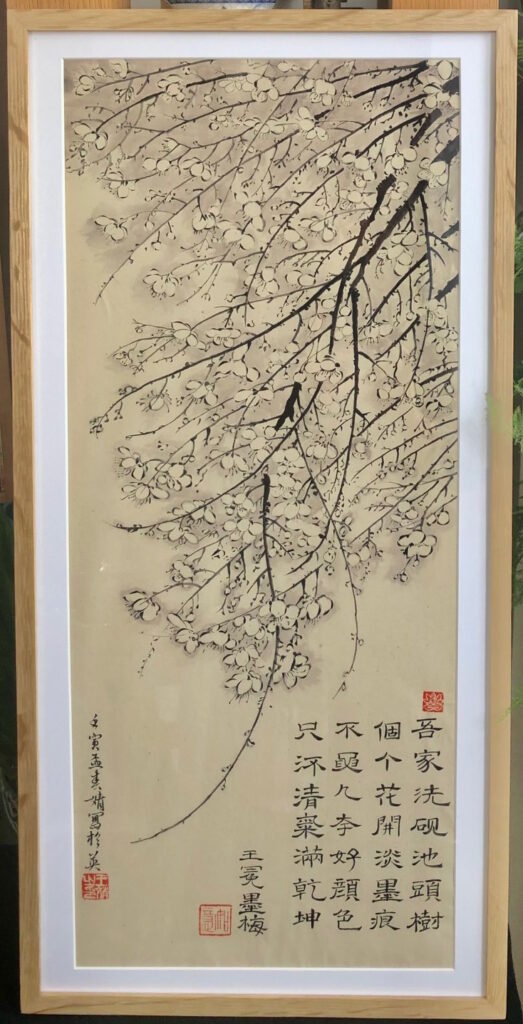 吾家洗砚池頭樹
個个花開淡墨痕
不要人夸好顏色
只流清氣滿乾坤
王冕墨梅
壬寅孟春婧寫於英